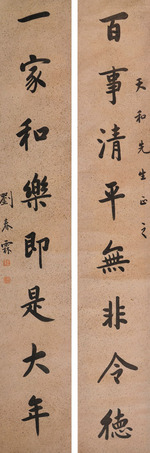 百事清平無非令德
天和先生正之
一家和樂即是大年
劉春霖